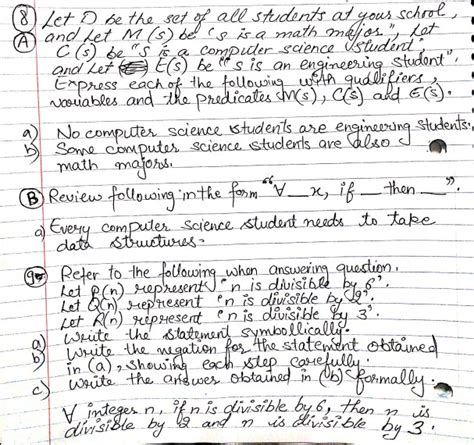 ⑧ Let D be the set of all students at your school,
Ⓐ and Let M(s) be "s is a math major", Let
C(s) be "s is a computer science student",
and Let E(s) be "s is an engineering student".
Express each of the following with qualifiers,
variables and the predicates M(s), C(s) and E(s).
a) No computer science students are engineering students.
b) Some computer science students are also
math majors.
Ⓑ Review following in the form "∀ _ x, if _ then _".
a) Every computer science student needs to take
data structures.
⑨ Refer to the following when answering question.
Let P(n) represent 'n is divisible by 6'.
Let Q(n) represent 'n is divisible by 2'.
Let R(n) represent 'n is divisible by 3'.
a) Write the statement symbollically.
b) Write the negation for the statement obtained
in (a), showing each step carefully.
c) Write the answer obtained in (b) formally.
∀ integers n, if n is divisible by 6, then n is
divisible by 2 and n is divisible by 3.